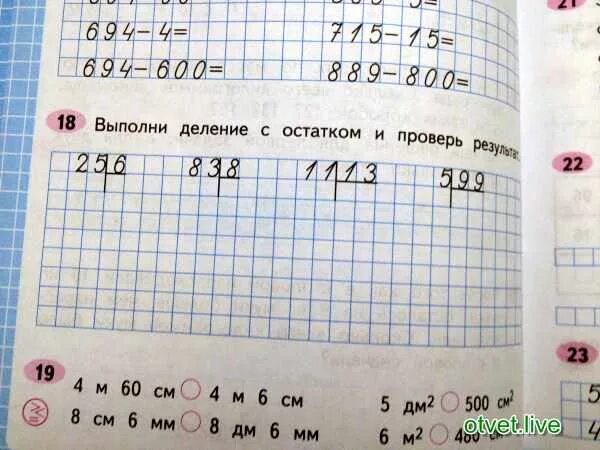 21
694-4=
715-15=
694-600=
889-800=
18 Выполни деление с остатком и проверь результат.
25|6 83|8 111|3 5|99
22
19
4 м 60 см ○ 4 м 6 см
5 дм² ○ 500 см²
23
8 см 6 мм ○ 8 дм 6 мм
6 м² ○
otvet.live